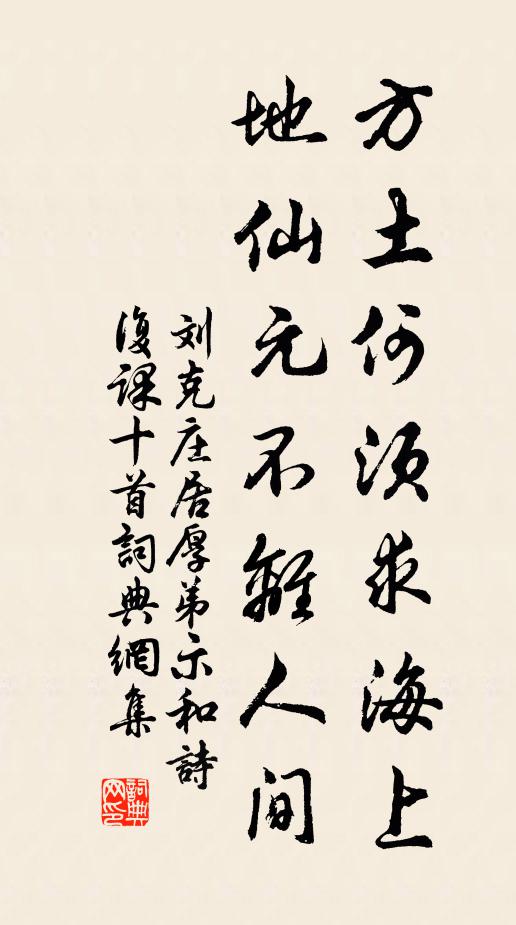 方士何须求海上
地仙元不離人间
刘克庄居厚弟示和詩
復课十首詞典網集
詞典网印